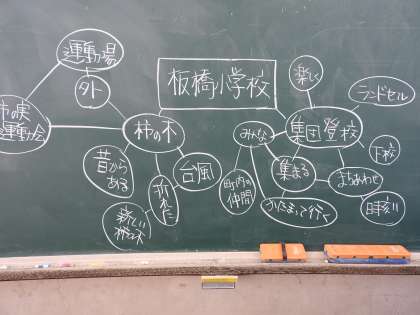 運動場
外
板橋小学校
楽しく
ランドセル
市の実
運動会
柿の木
みんな
集団登校
下校
昔から
ある
台風
折れた
町内の
仲間
集まる
まちあわせ
かたまって行く
時刻
新しい